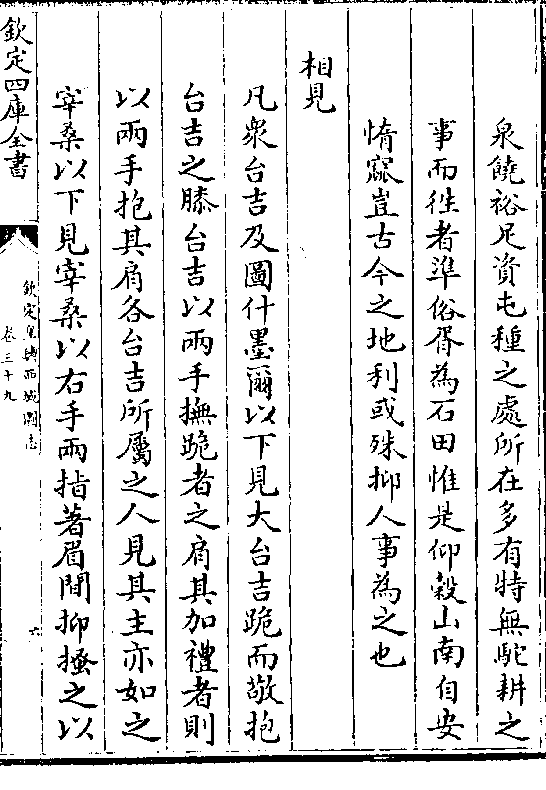 泉饒裕足資屯種之處所在多有特無駝耕之
事而徃者準俗胥為石田惟是仰穀山南自安
惰窳豈古今之地利或殊抑人事為之也
相見
凡衆台吉及圖什墨爾以下見大台吉跪而敬抱
台吉之膝台吉以兩手撫跪者之肩其加禮者則
以兩手抱其肩各台吉所屬之人見其主亦如之
宰桑以下見宰桑以右手兩指著眉間抑搔之以
欽定四庫全書
欽定皇輿西域圖志
卷三十九
六